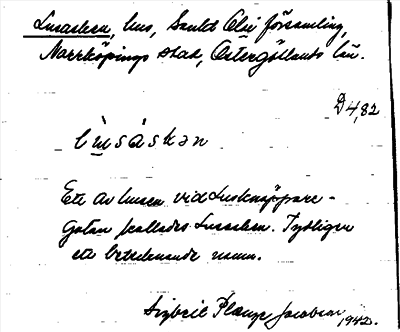 Lusasken, hus, Sankt Olai församling,
Norrköpings stad, Östergötlands län.
D 4,82
lu̱sáskən
Ett av husen vid Lusknäppare-
Gatan kallades Lusasken. Tydligen
ett betecknande namn.
Jacobson 1942.